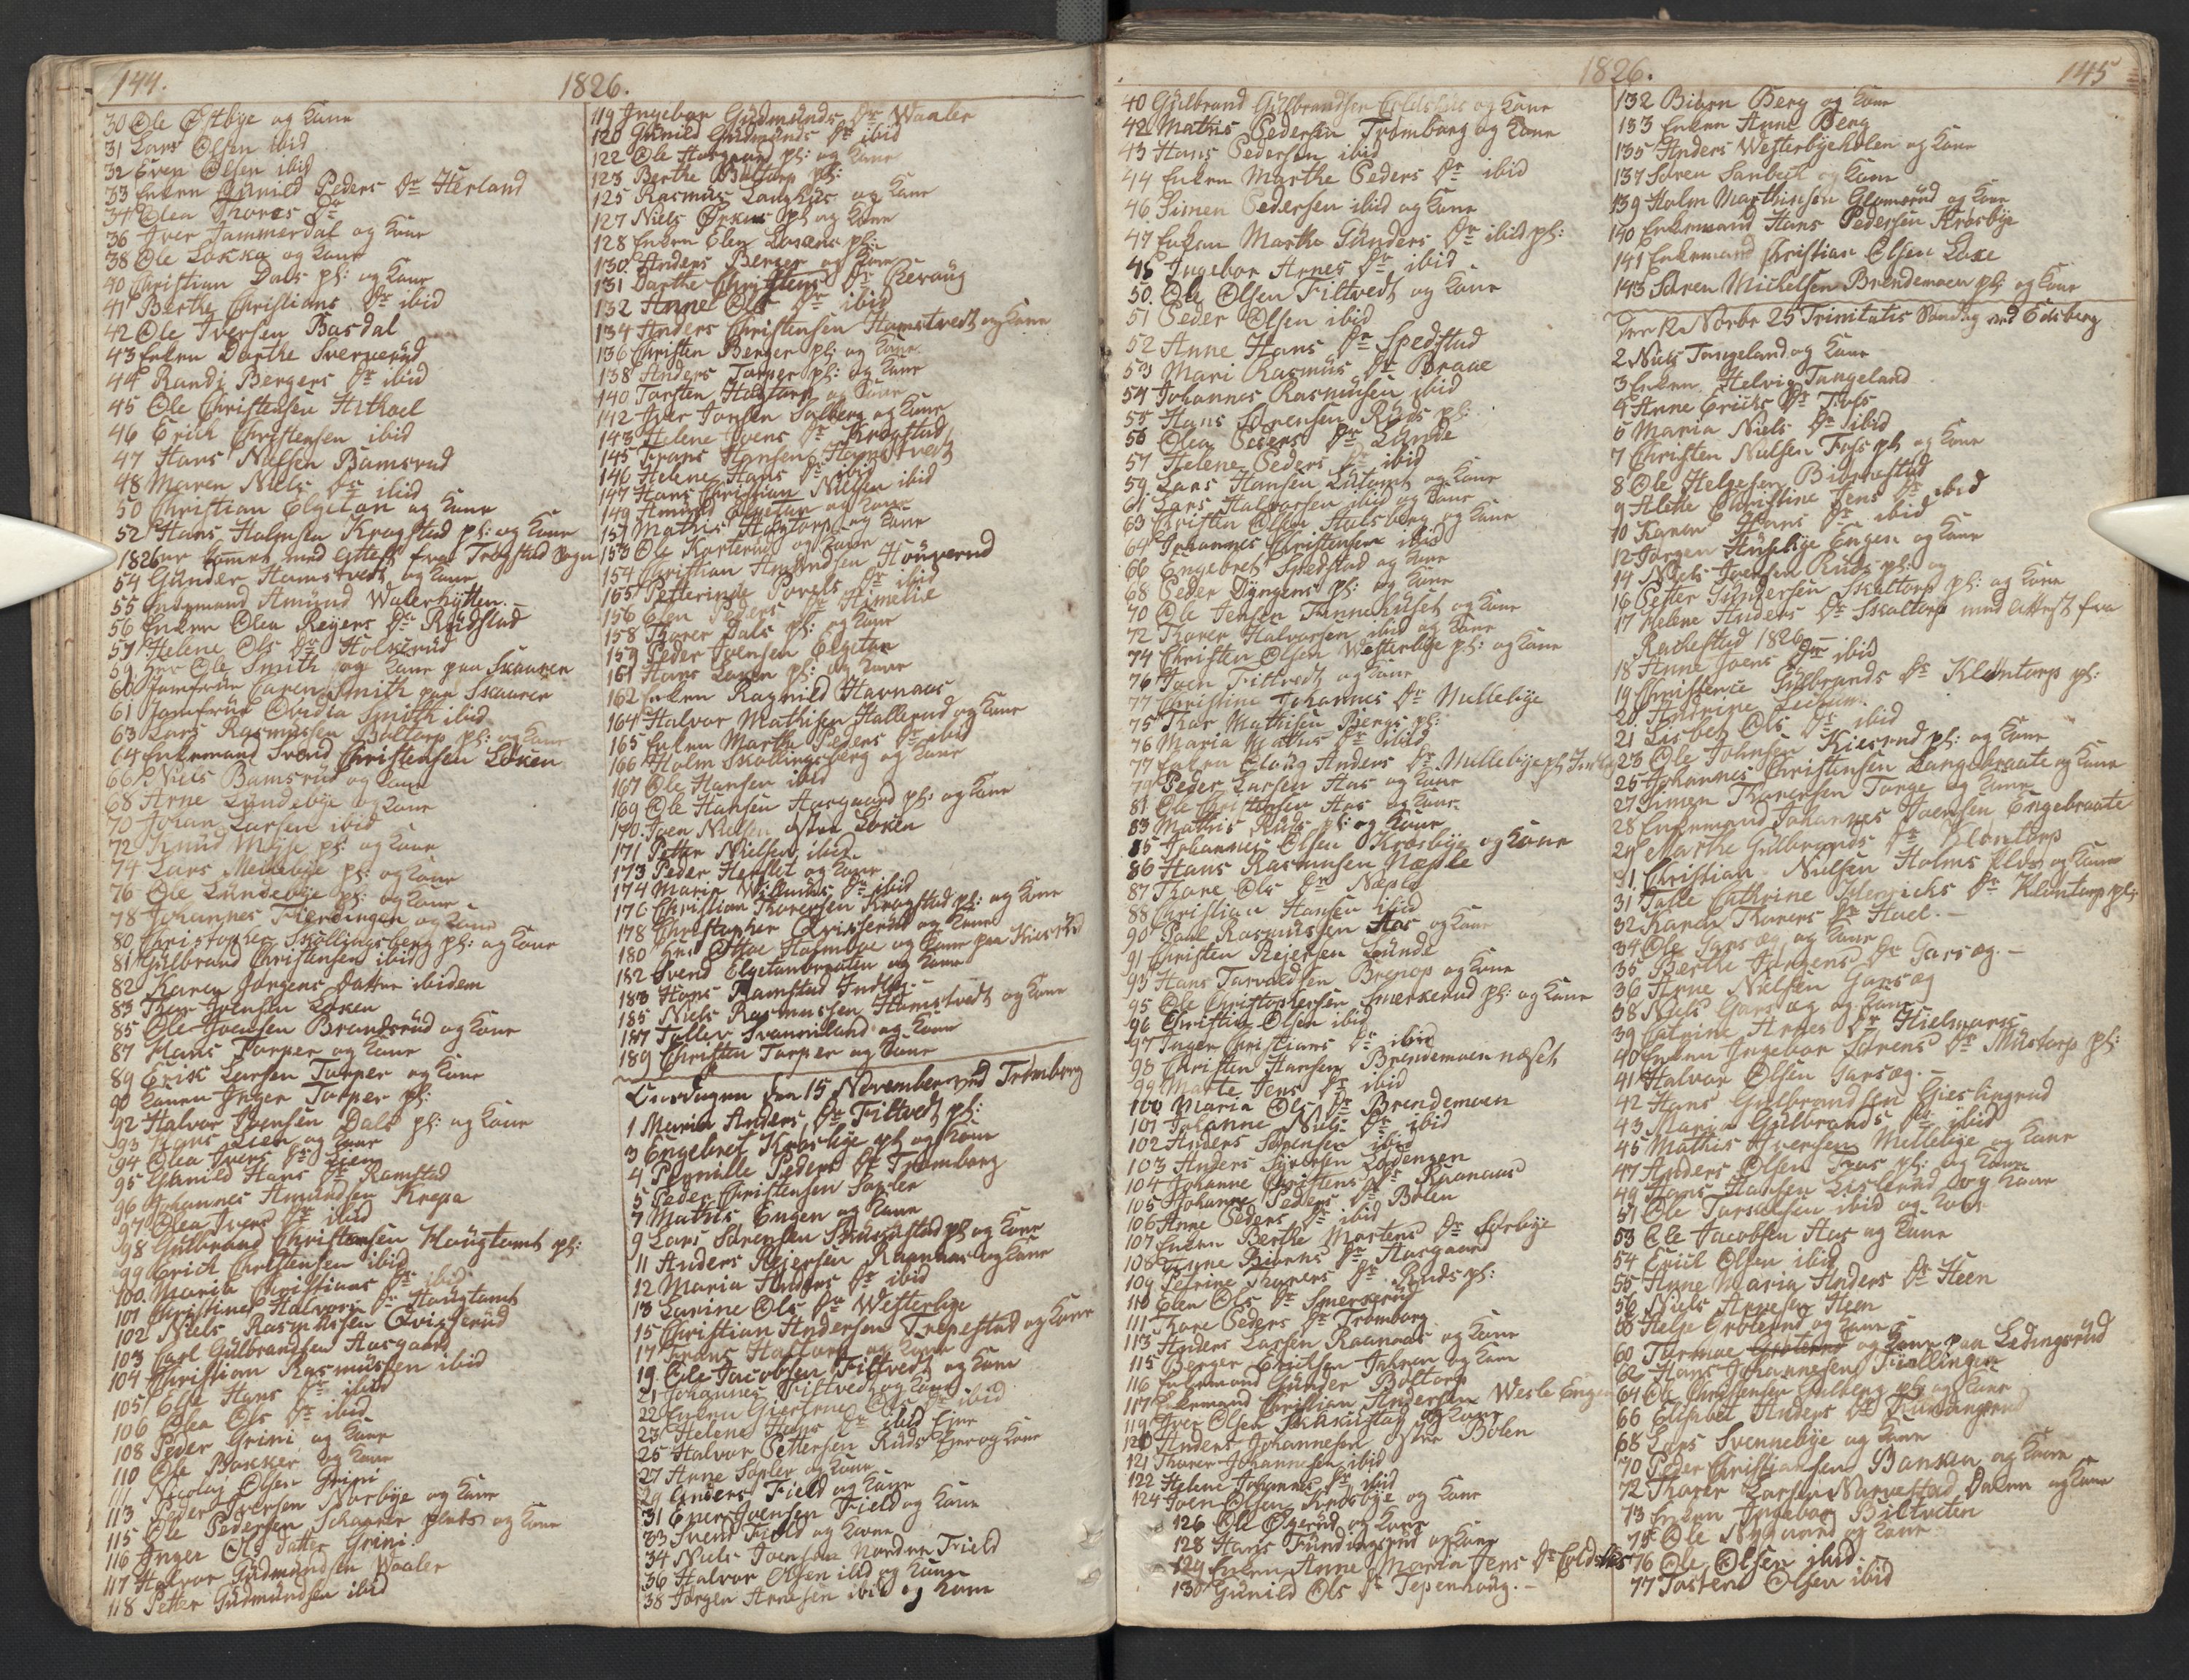 144.
1826.
30 Ole Østbye og Kone
31 Lars Olsen ibid
32 Even Olsen ibid
33 Enken Gunild Peders Dr Herland
34 Olea Thores Dr
36 Iver Jammerdal og Kone
38 Ole Løkka og Kone
40 Christian Dals pl: og Kone
41 Berthe Christians Dr ibid
42 Ole Iversen Basdal
43 Enken Dorthe Svennerud
44 Randi Bergers Dr ibid
45 Ole Christensen Hithoel
46 Erich Christensen ibid
47 Hans Nilsen Bamsrud
48 Maren Niels Dr ibid
50 Christian Elgetan og Kone
52 Hans Holmsen Kragstad pl: og Kone
1826 er kommet med Attest fra Trøgstad Sogn
54 Gunder Hamstvedt og Kone
55 Amund Walerhytten.
56 Enken Olea Reyers Dr Rudstad
57 Helene Ols Dr Holkerud
59 Herr Ole Smith og Kone paa Skaaren
60 Jomfrue Caren Smith paa Skaaren
61 Jomfrue Ovidia Smith ibid
63 Lars Rasmussen Boltorp pl: og Kone
64 Enkemand Svend Christensen Løken
66 Niels Bamsrud og Kone
68 Arne Lundebye og Kone
70 Johan Larsen ibid
72 Knud Mysse pl: og Kone
74 Lars Mellebye pl: og Kone
76 Ole Lundebye pl: og Kone
78 Johannes Fierdingen og Kone
80 Christopher Skøllingsberg pl: og Kone
81 Gulbrand Christensen ibid
82 Karen Jørgens Datter ibidem
83 Thor Joensen Løken
85 Ole Joensen Brandsrud og Kone
87 Hans Torper og Kone
89 Erik Larsen Torper og Kone
90 Konen Inger Torper pl:
92 Halvor Joensen Dals pl: og Kone
93 Hans Lien og Kone
94 Olea Ivers Dr Lien
95 Gunild Hans Dr Ramstad
96 Johannes Amundsen Krepa
97 Olea Ivers Dr ibid
98 Gulbrand Christensen Haugtomt pl:
99 Erich Christensen ibid
100 Maria Christians Dr ibid
101 Christine Halvors Dr Haugtomt
102 Niels Rasmussen Qvisserud
103 Carl Gulbrandsen Aasgaard
104 Christian Rasmussen ibid
105 Else Hans Dr ibid
106 Olea Ols Dr ibid
108 Peder Grini og Kone
110 Ole Bakker og Kone
111 Nicolay Olsen Grini
113 Peder Iversen Norbye og Kone
115 Ole Pedersen Skaaren plads og Kone
116 Inger Ols Datter Grini
117 Halvor Gudmundsen Waaler
118 Petter Gudmundsen ibid
119 Ingebor Gudmunds Dr Waaler
120 Gunild Gudmunds Dr ibid
122 Ole Aasgaard pl: og Kone
123 Berthe Boltorp pl:
125 Rasmus Laushus og Kone
127 Niels Ørkus pl og Kone
128 Enken Elen Løkens pl:
130. Anders Berger og Kone
131 Dorthe Christens Dr Beraug
132 Anne Ols Dr ibid
134 Anders Christensen Hamstvedt og Kone
136 Christen Berger pl: og Kone
138 Anders Torper pl: og Kone
140 Torsten Hagtorp og Kone
142 Iver Jonsen Solberg og Kone
143 Helene Joens Dr Kragstad
145 Frans Hansen Hamstvedt
146 Helene Hans Dr ibid
147 Hans Christian Nilsen ibid
149 Amund Elgetan og Kone
151 Mathis Hagtorp og Kone
153 Ole Korterud og Kone
154 Christian Amundsen Houverud
155 Petterine Povels Dr ibid
156 Elen Peders Dr Himelie
158 Thorer Dals pl: og Kone
159 Peder Joensen Elgetan
161 Hans Løken pl: og Kone
162 Enken Ragnild Havnaas
164 Halvor Mathisen Hallerud og Kone
165 Enken Marthe Peders Dr ibid
166 Holm Skøllingsberg og Kone
167 Ole Hansen ibid
169 Ole Hansen Aasgaard pl: og Kone
170. Joen Nielsen østre Løken
171 Petter Nielsen ibid
173 Peder Herslet og Kone
174 Maria Willums Dr ibid
176 Christian Thorersen Kragstad pl: og Kone
178 Christopher Qvisserud og Kone
180 Herr Ottoe Holmboe og Kone paa Kiesrud
182 Svend Elgetanbraaten og Kone
183 Hans Ramstad Inds.
185 Niels Rasmussen Hamstvedt og Kone
187 Tollev Svanniland og Kone
189 Christen Torper og Kone
Onsdagen den 15 November ved Trømborg
1 Maria Anders Dr Filtvedt pl:
3 Engebret Krosbye pl og Kone
4 Pernille Peders Dr Trømborg
5 Peder Christensen Sopler
7 Mathis Engen og Kone
9 Lars Sørensen Skausstad pl og Kone
11 Anders Reiersen Raanaas og Kone
12 Maria Anders Dr ibid
13 Lovine Ols Dr Westerbye
15 Christian Andersen Trepestad og Kone
17 Frans Hafton og Kone
19 Ole Jacobsen Filtvedt og Kone
21 Johannes Filtvedt og Kone
22 Enken Giertrue Ols Dr ibid
23 Helene Hans Dr ibid
25 Halvor Pettersen Ruds Eier og Kone
27 Arne Sopler og Kone
29 Anders Field og Kone
31 Ener Joensen Field og Kone
33 Svend Field og Kone
34 Niels Joensen Nordre Field
36 Halvor Olsen ibid og Kone
38 Jørgen Arnesen ibid og Kone
1826.
145
40 Gulbrand Gulbrandsen Coldshus og Kone
42 Mathis Pedersen Trømborg og Kone
43 Hans Pedersen ibid
44 Enken Marthe Peders Dr ibid
46 Simen Pedersen ibid og Kone
47 Enken Marthe Gunders Dr ibid pl:
48 Ingebor Arnes Dr ibid
50. Ole Olsen Filtvedt og Kone
51 Peder Olsen ibid
52 Anne Hans Dr Spedstad
53 Mari Rasmus Dr Braae
54 Johannes Rasmussen ibid
55 Hans Sørensen Ruds pl:
56 Olea Peders Dr Lunde
57 Helene Peders Dr ibid
59 Lars Hansen Lutomt og Kone
61 Lars Halvorsen ibid og Kone
63 Christen Olsen Stulsberg og Kone
64 Johannes Christensen ibid
66 Engebret Spedstad og Kone
68 Peder Dyngens pl: og Kone
70 Ole Jensen Tønnehuset og Kone
72 Thorer Halvorsen ibid og Kone
74 Christen Olsen Westerbye pl: og Kone
76 Joen Filtvedt og Kone
77 Christine Johannes Dr Mellebye
75 Thor Mathisen Bergs pl:
76 Maria Mathis Dr ibid
77 Enken Elaug Anders Dr Mellebye pl
79 Peder Larsen Aas og Kone
81 Ole Christensen Aas og Kone
83 Mathis Ruds pl: og Kone
85 Johannes Olsen Krosbye og Kone
86 Hans Rasmusen Næsle
87 Thore Ols Dr Næple
88 Christian Hansen ibid
90 Paul Rasmussen Aas og Kone
91 Christen Rejersen Lunde
93 Hans Torvaldsen Brenop og Kone
95 Ole Christophersen Smerkerud pl: og Kone
96 Christian Olsen ibid
97 Inger Christians Dr ibid
98 Christen Hansen Brendemoen næset
99 Marte Jens Dr ibid
100 Maria Ols Dr Brendemoen
101 Johanne Niels Dr ibid
102 Anders Sørensen ibid
103 Anders Syversen Lødengen
104 Johanne Christens Dr Raanaas
105 Johanne Peders Dr Bølen
106 Anne Peders Dr ibid
107 Enken Berthe Mortens Dr Sørbye
108 Anne Biørns Dr Aasgaard
109 Petrine Thorers Dr Ruds pl:
110 Elen Ols Dr Smerkerud
111 Kare Peders Dr Trømborg
113 Anders Larsen Raanaas og Kone
115 Berger Erichsen Jahren og Kone
116 Enkemand Gunder Boltorp
117 Enkemand Christian Andersen Wesle Engen
119 Iver Olsen Skausstad og Kone
120 Anders Johannesen østre Bølen
121 Thorer Johannesen ibid
122 Helene Johannes Dr ibid
124 Joen Olsen Krosbye og Kone
126 Ole Øgerud og Kone
128 Hans Fundingsrud og Kone
129 Enken Anne Maria Jens Dr Coldshus
130 Gunild Ols Dr Tepenhaug.
132 Biørn Berg og Kone
133 Enken Anne Berg
135 Anders Westerbyeholen og Kone
137 Søren Sanbech og Kone
139 Holm Marthinsen Glomsrud og Kone
140 Enkemand Hans Pedersen Krosbye
141 Enkemand Christian Olsen Løke
143 Søren Michelsen Brendemoen pl: og Kone
Den 12 Novbr 25 Trinitatis Søndag ved Edsberg
2 Niels Tangeland og Kone
3 Enken Helvig Tangeland
4 Anne Erichs Dr Foss
5 Maria Niels Dr ibid
7 Christen Nielsen Foss pl og Kone
8 Ole Helgesen Biørnestad
9 Alethe Christine Jens Dr ibid
10 Karen Hans Dr ibid
12 Jørgen Huseby Engen og Kone
14 Niels Joensen Ruds pl: og
16 Petter Gundersen Skaltorp pl: og Kone
17 Helene Anders Dr Skaltorp med Attest fra
Rachestad 1826
18 Anne Joens Dr ibid
19 Christence Gulbrands Dr Klontorp pl:
20 Andrine Lechum.
21 Lisbet Ols Dr ibid
23 Ole Johnsen Kiesrud pl: og Kone
25 Johannes Christensen Langebraate og Kone
27 Simen Thorersen Torge og Kone
28 Enkemand Johannes Joensen Engebraate
29 Marthe Gulbrands Dr Klontorp
31. Christian Nielsen Holms pl: og Kone
31 Tale Cathrine Henrichs Dr Klontorp pl:
32 Karen Thorers Dr Hael.
34 Ole Garsæg og Kone
35 Berthe Jørgens Dr Garsæg.
36 Arne Nielsen Garsæg
38 Niels Garsæg og Kone
39 Catrine Arnes Dr Hielmark
40 Enken Ingebor Sørens Dr Mustorp pl:
41 Halvor Olsen Garsæg.
42 Hans Gulbrandsen Gieslingrud
43 Maria Gulbrands Dr ibid
45 Mathis Iversen Mellebye og Kone
47 Anders Olsen Foss pl: og Kone
49 Hans Hansen Lislerud og Kone
51 Ole Torsensen ibid og Kone
53 Ole Jacobsen Aas og Kone
54 Erich Olsen ibid
55 Anne Maria Anders Dr Heen
56 Niels Arnesen Heen
58 Helje Grøterud og Kone
60 Tormoe og Kone paa Lekingsrud
62 Hans Johannesen Fiællingen
64 Ole Christensen Solberg pl og Kone
66 Elisabet Anders Dr
68 Lars Svennebye og Kone
70 Peder Christiansen Banken og Kone
72 Thorer Larsen Narvestad Dalen og Kone
73 Enken Ingebor Biltveten
75 Ole Nygaard og Kone
76 Ole Olsen ibid.
77 Tosten Olsen ibid